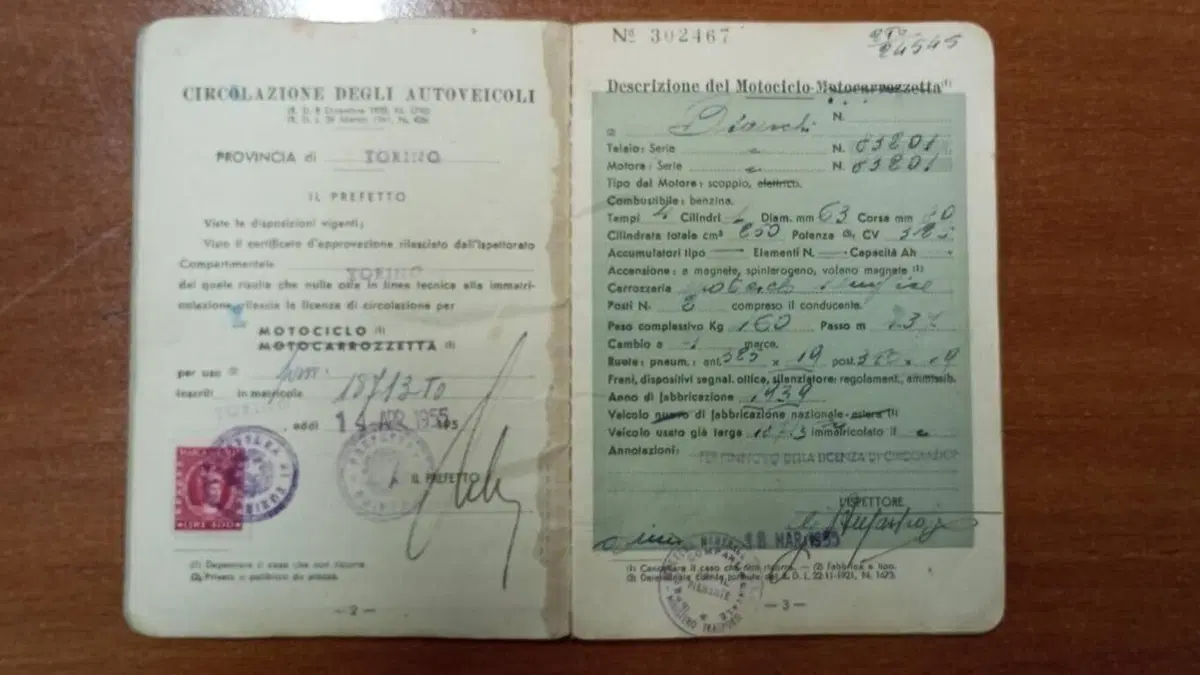 CIRCOLAZIONE DEGLI AUTOVEICOLI
(R. D. 8 Dicembre 1933, N. 1740)
PROVINCIA di TORINO
IL PREFETTO
Viste le disposizioni vigenti;
Visto il certificato d'approvazione rilasciato dall'Ispettorato
Compartimentale TORINO
dal quale risulta che nulla osta in linea tecnica alla immatri-
colazione, rilascia la licenza di circolazione per
MOTOCICLO (1)
MOTOCARROZZETTA (1)
per uso (2)
inscritt in matricola 18713 TO
TORINO, addì 14 APR 1955 195
IL PREFETTO
LIRE
(1) Depennare il caso che non ricorre.
(2) Privato o pubblico da piazza.
— 2 —
Nº 302467
24545
Descrizione del Motociclo-Motocarrozzetta (1)
N.
(2) Bianchi
Telaio: Serie N. 83201
Motore: Serie N. 83201
Tipo del Motore: scoppio, elettrico.
Combustibile: benzina.
Tempi 4 Cilindri 1 Diam. mm 63 Corsa mm 80
Cilindrata totale cm³ 250 Potenza (3): CV
Accumulatori tipo — Elementi N. — Capacità Ah -
Accensione: a magnete, spinterogeno, volano magnete (1)
Carrozzeria
Posti N. 2 compreso il conducente.
Peso complessivo Kg 160 Passo m
Cambio a marce.
Ruote: pneum.: ant. × 19 post. × 19
Freni, dispositivi segnal. ottico, silenziatore: regolament., ammissib.
Anno di fabbricazione 1939
Veicolo nuovo di fabbricazione nazionale-estera (1)
Veicolo usato già targa 18713 immatricolato il
Annotazioni: PER RINNOVO DELLA LICENZA DI CIRCOLAZIONE
L'ISPETTORE
MAR 1955
(1) Cancellare il caso che non ricorre. — (2) Fabbrica e tipo.
— 3 —